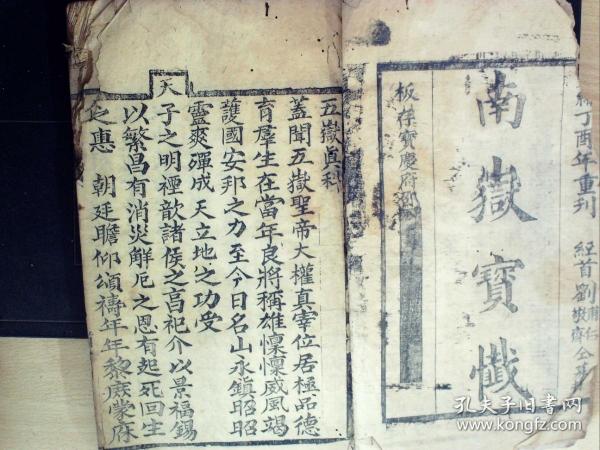 丁酉年重刊
經首劉
南嶽寶懺
板存寶慶府
五嶽真科
蓋聞五嶽聖帝大權真宰位居極品德
育羣生在當年良將稱雄懍懍威風竭
護國安邦之力至今日名山永鎮昭昭
靈爽殫成天立地之功受
天
子之明禋歆諸侯之高祀介以景福錫
以繁昌有消災解厄之恩有起死回生
之惠 朝廷瞻仰頌禱年年黎庶蒙庥
孔夫子旧书网
www.kongfz.com